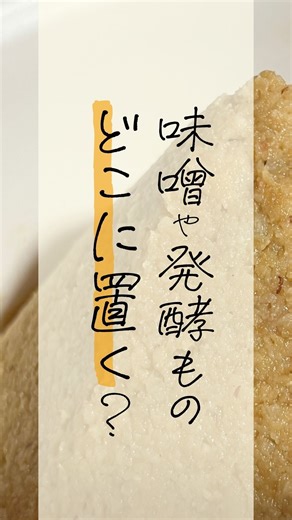 味噌や発酵もの
どこに置く?